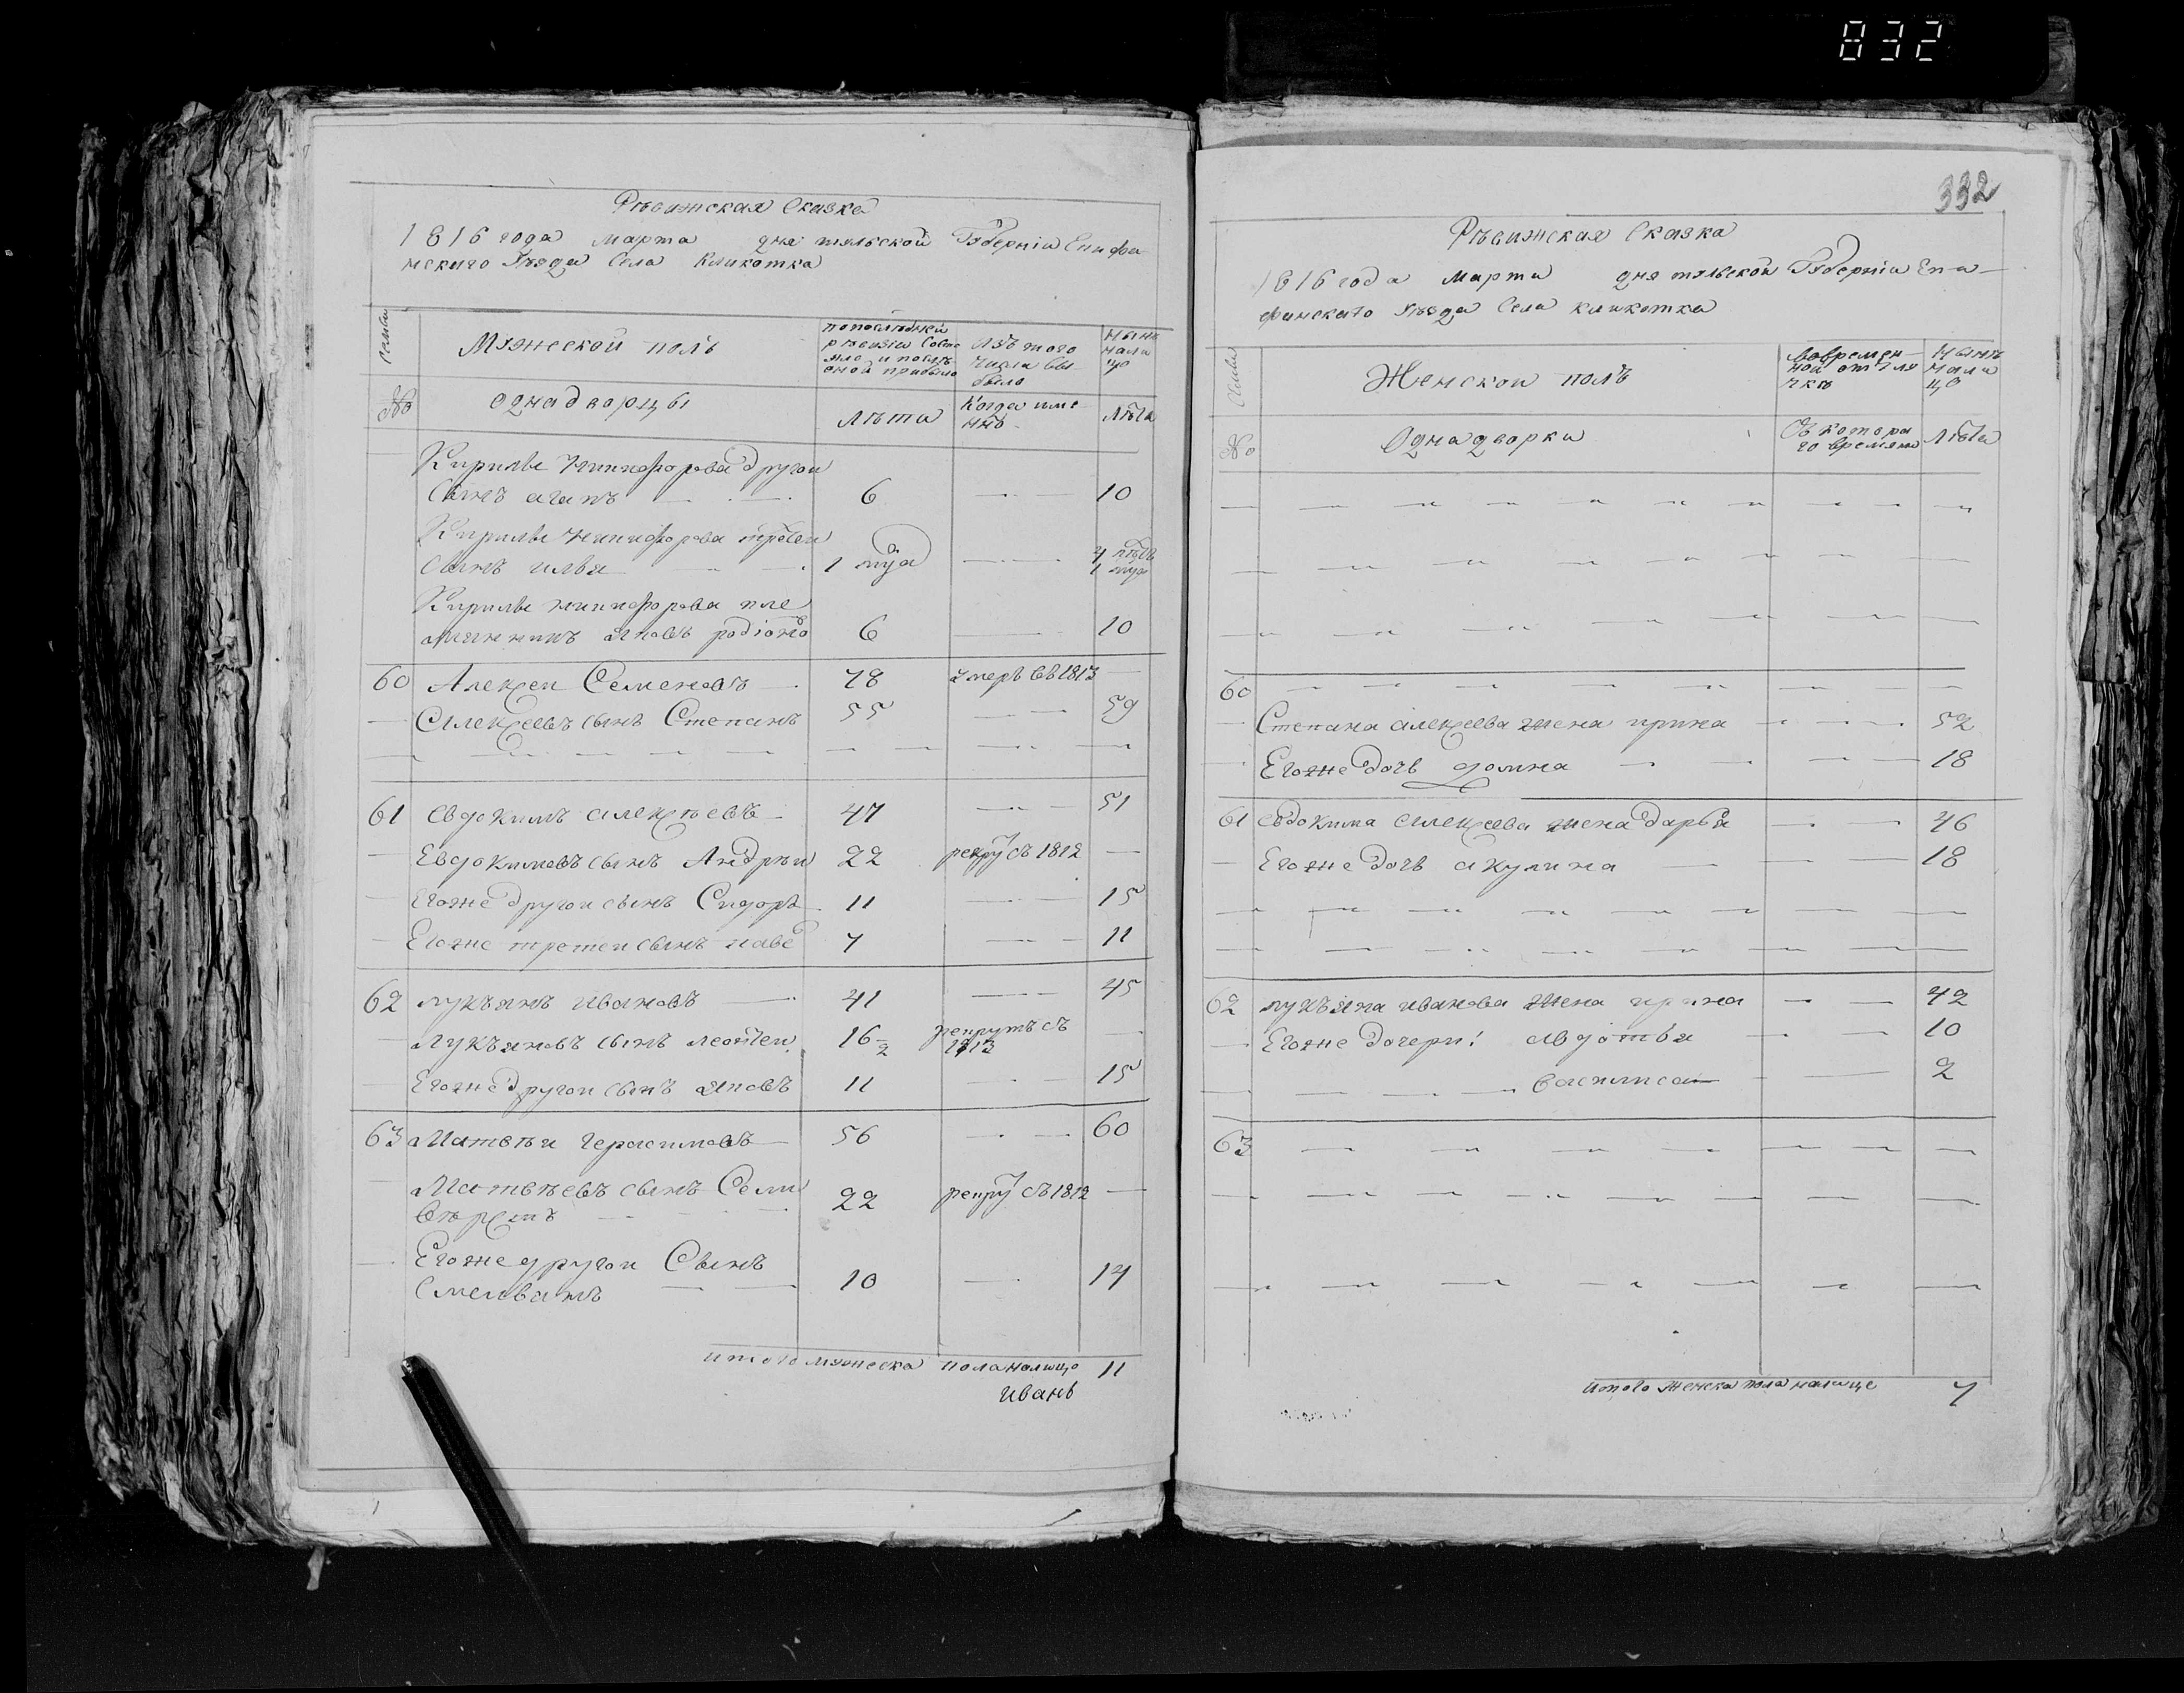 832
Ревижская Сказка
1816 года марта дня тульской Губерніи Епифа
нскаго Уезда Села Кликотка
Семьи
Мужеской полъ
по последней
ревизіи состо
яло и после
оной прибыло
Изъ того
числа вы
было
Ныне
нали
цо
№
однадворцы
Лета
Когда име
нно
Лета
Кирилы Никифорова другои
сынъ агапъ 6 10
Кирилы Никифорова третеи
сынъ илья 1 года 4 летъ
1 года
Кирилы никифорова пле
мянникъ яковъ родіоно 6 10
60 Алексеи Семеновъ 78 умеръ въ 1813
Алексеевъ сынъ Степанъ 55 59
61 Евдокимъ алексеевъ 47 51
Евдокимовъ сынъ Андреи 22 рекру съ 1812
Егоже другои сынъ Сидоръ 11 15
Егоже третеи сынъ паве 7 11
62 лукъянъ ивановъ 41 45
Лукъяновъ сынъ леонтеи 16 1/2 рекрутъ съ
1813
Егоже другои сынъ яковъ 11 15
63 Матвеи герасимовъ 56 60
Матвеевъ сынъ Сели
верстъ 22 рекру съ 1812
Егоже другои Сынъ
Емельянъ 10 14
итого мужеска пола налицо 11
Иванъ
332
Ревижская Сказка
1816 года марта дня тульской Губерніи Епи
фанскаго Уезда Села кликотка
Семьи
Женскои полъ
Во времен
ной отлу
чке
Ныне
нали
цо
№
Однадворки
Съ котора
го времяни
Лета
60
Степана алексеева жена ирина 52
Егоже дочь домна 18
61 Евдокима алексеева жена дарья 46
Егоже дочь акулина 18
62 лукъяна иванова жена ирина 42
Егоже дочери: авдотья 10
василиса 2
63
итого женска пола налице 7